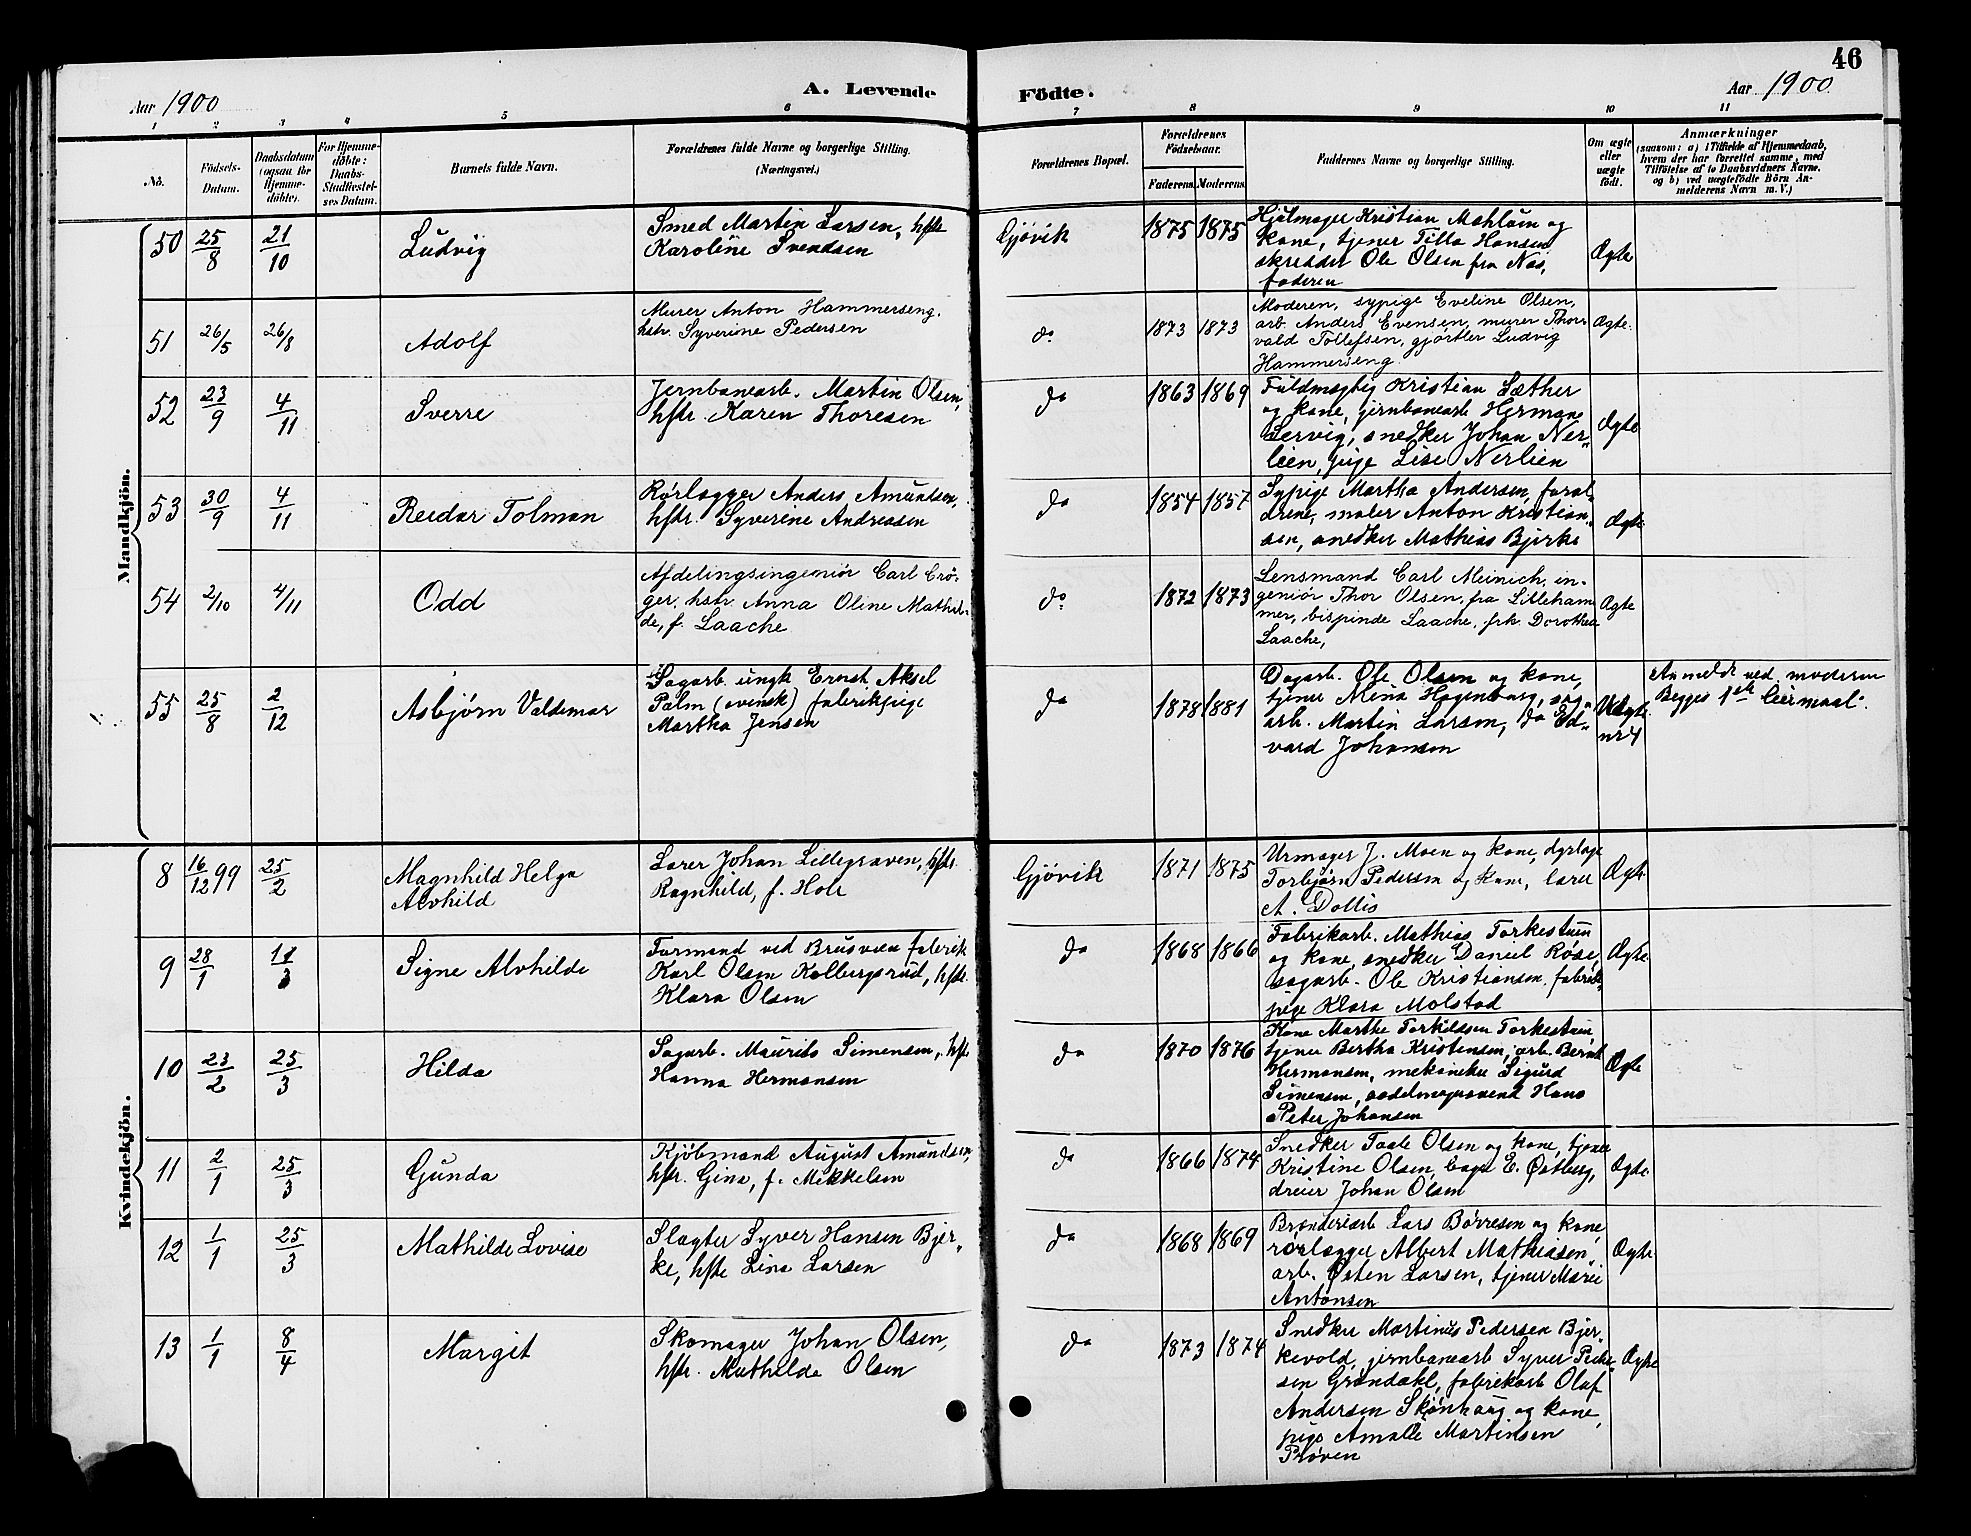 46
Aar 1900
A. Levende
Födte.
Aar 1900
1 2 3 4 5 6 7 8 9 10 11
No.
Födsels-
Datum.
Daabsdatum
(ogsaa for
Hjemme-
döbte).
For Hjemme-
döbte:
Daabs-
Stadfæstel-
ses Datum.
Barnets fulde Navn.
Forældrenes fulde Navne og borgerlige Stilling.
(Næringsvei.)
Forældrenes Bopæl.
Forældrenes
Födselsaar.
Faderens. Moderens.
Faddernes Navne og borgerlige Stilling.
Om ægte
eller
uægte
födt.
Anmærkninger
(saasom: a) i Tilfælde af Hjemmedaab,
hvem der har forrettet samme, med
Tilföielse af to Daabsvidners Navne.
og b) ved uægtefödte Börn An-
melderens Navn m. V.)
Mandkjön.
50 25/8 21/10 Ludvig
Smed Martin Larsen, hstr
Karoline Svendsen
Gjøvik 1875 1875
Hjulmager Kristian Mahlum og
kone, tjener Tilla Hansen
skredder Ole Olsen fra Næs,
faderen
Ægte
51 26/5 26/8 Adolf
Murer Anton Hammerseng,
hstr. Syverine Pedersen
do 1873 1873
Moderen, sypige Eveline Olsen,
arb. Anders Evensen, murer Thor-
vald Tollefsen, gjørtler Ludvig
Hammerseng
Ægte.
52 23/9 4/11 Sverre
Jernbanearb. Martin Olsen,
hstr. Karen Thoresen
do 1863 1869
Fuldmægtig Kristian Sæther
og kone, jernbanearb Herman
Lervig, snedker Johan Ner-
lien, pige Lise Nerlien
Ægte
53 30/9 4/11 Reidar Tolman
Rørlægger Anders Amundsen,
hstr. Syverine Andreasen
do 1854 1857
Sypige Martha Andersen, foræl-
drene, maler Anton Kristian-
sen, snedker Mathias Bjerke
Ægte
54 2/10 4/11 Odd
Afdelingsingeniør Carl Crö-
ger, hstr. Anna Oline Mathil-
de, f. Laache
do 1872 1873
Lensmand Carl Meinich, in-
geniør Thor Olsen, fra Lilleham-
mer, bispinde Laache, frk. Dorothea
Laache,
Ægte
55 25/8 2/12 Asbjørn Valdemar
Sagarb. ungk Ernst Aksel
Palm (svensk) fabrikpige
Martha Jensen
do 1878 1881
Dagarb. Ole Olsen og kone,
tjener Mina Hagenburg, sag-
arb. Martin Larsen, do Ed-
vard Johansen
Uægte
nr 4
Anmeldt ved moderen
Begges 1ste leiermaal.
Kvindekjön.
8 16/12 99 25/2 Magnhild Helga
Alvhild
Lærer Johan Lillegraven, hstr.
Ragnhild, f. Hole
Gjøvik 1871 1875
Urmager J. Moen og kone, dyrlæge
Torbjørn Pedersen og kone, lærer
A. Dollis
Ægte
9 28/1 11/3 Signe Alvhilde
Formand ved Brusvæn fabrik
Karl Olsen Kolbergsrud, hstr.
Klara Olsen
do 1868 1866
Fabrikarb. Mathias Torkestuen
og kone, snedker Daniel Røse,
sagarb. Ole Kristiansen, fabrik-
pige Klara Molstad
Ægte
10 23/2 25/3 Hilda
Sagarb. Maurits Simensen, hstr
Hanna Hermansen
do 1870 1876
Kone Marthe Torkildsen Torkestuen,
tjener Bertha Kristensen, arb. Bernt
Hermansen, mekaniker Sigurd
Simensen, sadelmagersvend Hans
Peter Johansen
Ægte
11 2/1 25/3 Gunda
Kjøbmand August Amundsen,
hstr. Gina, f. Mikkelsen
do 1866 1874
Snedker Taale Olsen og kone, tjener
Kristine Olsen, bager E. Østberg,
dreier Johan Olsen
Ægte
12 1/1 25/3 Mathilde Lovise
Slagter Syver Hansen Bjer-
ke, hstr Lina Larsen
do 1868 1869
Brænderiarb Lars Børresen og kone,
rørlægger Albert Mathiasen,
arb. Østen Larsen, tjener Marie
Antonsen
Ægte
13 1/1 8/4 Margit
Skomager Johan Olsen,
hstr. Mathilde Olsen
do 1873 1874
Snedker Martinus Pedersen Bjer-
kevold, jernbanearb Syver Peder-
sen Grøndahl, fabrikarb Olaf
Andersen Skjønhaug og kone,
pige Amalie Martinsen
Prøven
Ægte